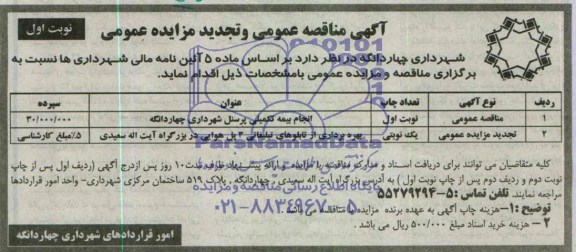 آگهی مناقصه عمومی وتجدید مزایده عمومی
نوبت اول
شهرداری چهاردانگه در نظر دارد بر اساس ماده ۵ آئین نامه مالی شهرداری ها نسبت به
برگزاری مناقصه و مزایده عمومی بامشخصات ذیل اقدام نماید.
ردیف نوع آگهی تعداد چاپ عنوان سپرده
۱ مناقصه عمومی نوبت اول انجام بیمه تکمیلی پرسنل شهرداری چهاردانگه ۳۰/۰۰۰/۰۰۰
۲ تجدید مزایده عمومی یک نوبتی بهره برداری از تابلوهای تبلیغاتی ۲ پل هوایی در بزرگراه آیت اله سعیدی ۵٪مبلغ کارشناسی
ParsNamadData
کلیه متقاضیان می توانند برای دریافت اسناد و مدارک مناقصه یا مزایده و ارائه پیشنهاد ظرف مدت ۱۰ روز پس ازدرج آگهی (ردیف اول پس از چاپ
نوبت دوم و ردیف دوم پس از چاپ نوبت اول ) به آدرس بزرگراه آیت اله سعیدی، چهاردانگه، پلاک ۵۱۹ ساختمان مرکزی شهرداری- واحد امور قراردادها
مراجعه نمایند. تلفن تماس :۵-۵۵۲۷۹۲۹۴
پایگاه اطلاع رسانی مناقصه و مزایده
توضیح :۱-هزینه چاپ آگهی به عهده برنده مزایده یا مناقصه می باشد.
۰۲۱-۸۸۳۴۹۶۷۰-۵
۲ – هزینه خرید اسناد مبلغ ۵۰۰/۰۰۰ ریال می باشد .
امور قراردادهای شهرداری چهاردانگه